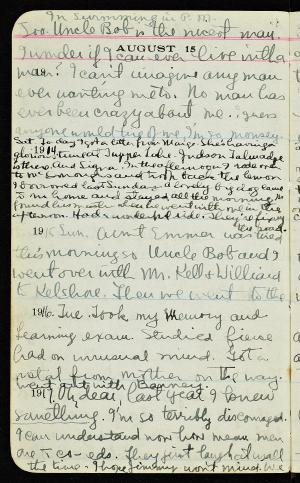 In Swimming in P.M.
Too. Uncle Bob is the nicest man.
AUGUST 15
I wonder if I can ever live with a
man? I can't imagine any man
ever wanting me to. No man has
ever been crazy about me. I guess
anyone would tire of me. I'm so
Sat. To day I got a letter from Marge. She's having a
1914
glorious time at Tupper Lake. Judson Talmadge
In the afternoon I rode over
to Mr. Emmons and took back the lemon
I borrowed last Sunday. A lovely big dog came
home and stayed all the morning. He
in the
afternoon. Had a wonderful ride. They're fixing
the road.
1915 Sun. Aunt Emma was tired
this morning so Uncle Bob and I
went over with Mr. Kell & Williard
to Kelshoe. Then we went to the
1916. Tue. Took my Memory and
Learning exam. Studied fierce
had on unusual mind. Got a
petal from mother on the way.
went out with Barney.
1917 Oh dear, last year I knew
something. I'm so terribly discouraged.
I can understand now how mean men
are to co-eds. They just laugh at us all
the time. I hope Jimmy won't mind. We